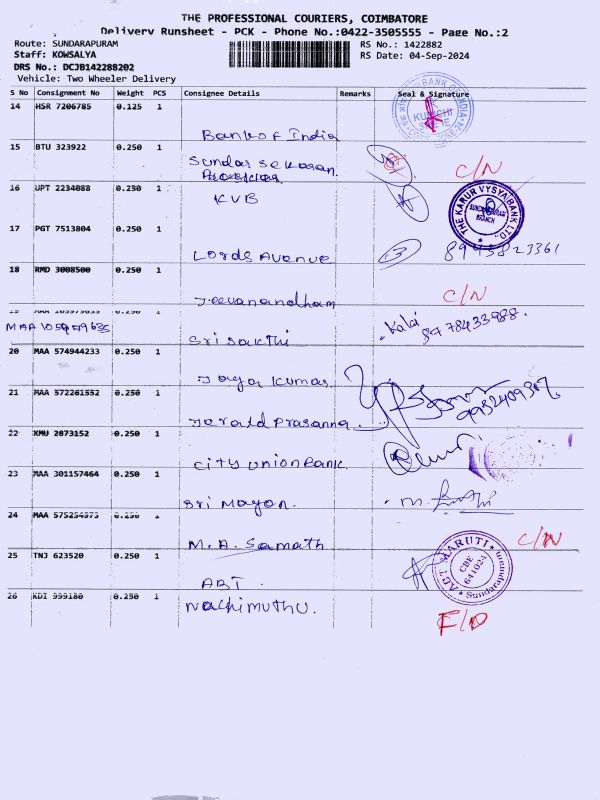 THE PROFESSIONAL COURIERS, COIMBATORE
Delivery Runsheet - PCK - Phone No.:0422-3505555 - Page No.:2
Route: SUNDARAPURAM
RS No.: 1422882
Staff: KOWSALYA
RS Date: 04-Sep-2024
DRS No.: DCJB142288202
Vehicle: Two Wheeler Delivery
S No Consignment No Weight PCS Consignee Details Remarks Seal & Signature
14 HSR 7206785 0.125 1
Bank of India
15 BTU 323922 0.250 1
Sundar Sekaran C/N
16 UPT 2234088 0.250 1
KVB
THE KARUR VYSYA BANK LTD.
SUNDARAPURAM
BRANCH
17 PGT 7513804 0.250 1
Lords Avenue 13
18 RMD 3008500 0.250 1
Jeevanandham C/N
19 MAA 105979635 0.250 1
MAA 105979635
Sri Sakthi Kalai
20 MAA 574944233 0.250 1
Jaya Kumar
21 MAA 572261552 0.250 1
Jerald Prasanna
22 XMU 2873152 0.250 1
City Union Bank
23 MAA 301157464 0.250 1
Sri Mayon
24 MAA 0.250 1
M.A. Samath C/N
25 TNJ 623520 0.250 1
ABT
ABT MARUTI
CBE
641024
Sundarapuram
26 KDI 999180 0.250 1
Nachimuthu F/D